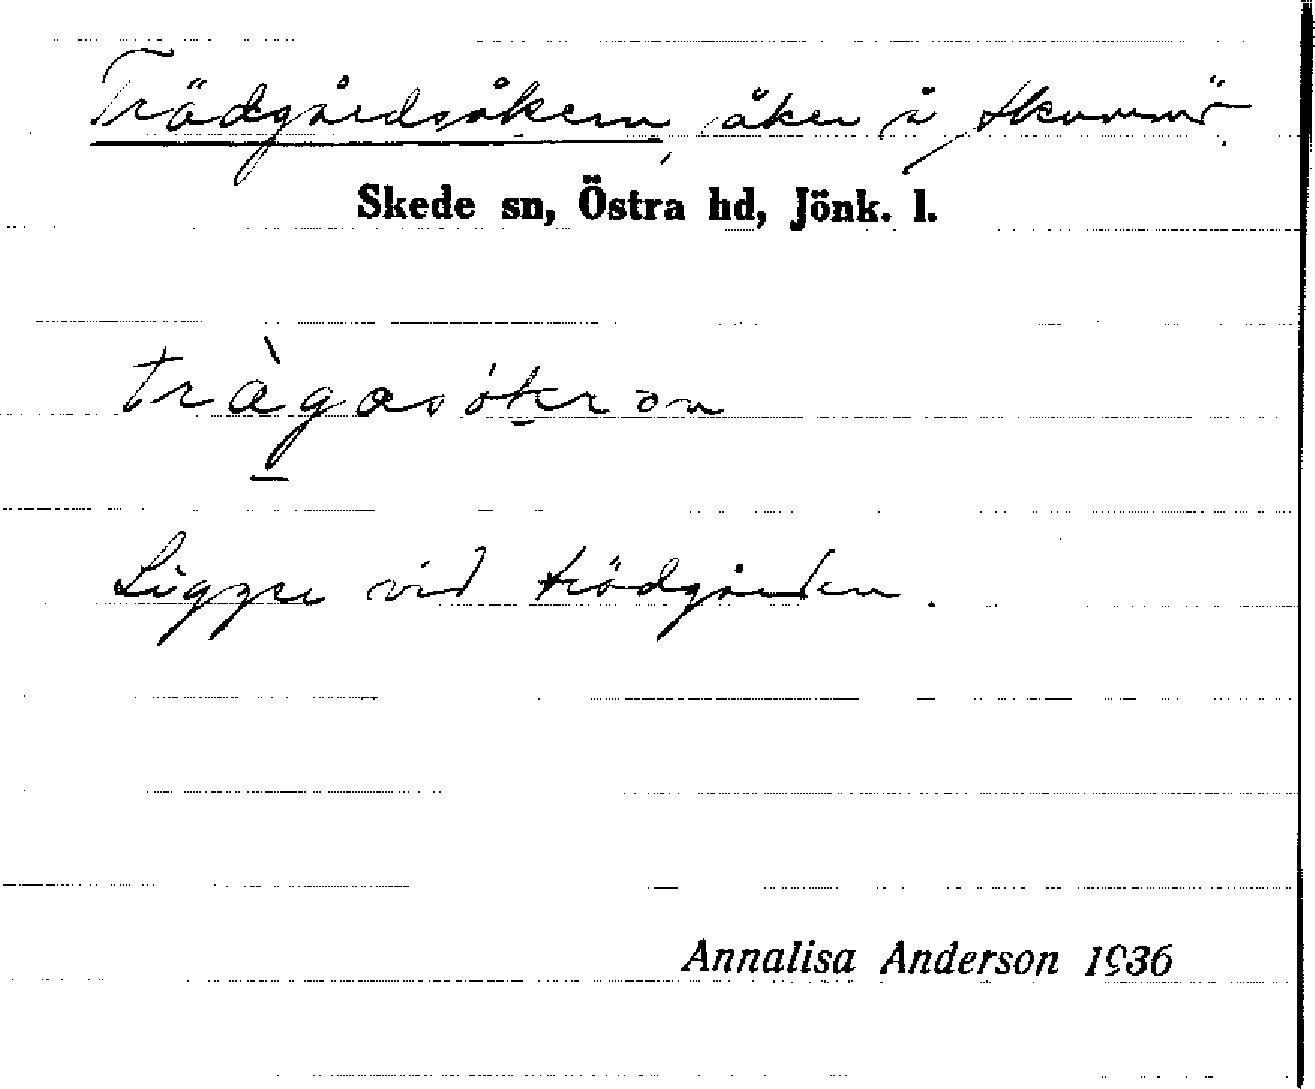 Trädgårdsåkern, åker i
Skede sn, Östra hd, Jönk. l.
Ligger vid trädgården.
Annalisa Anderson 1936